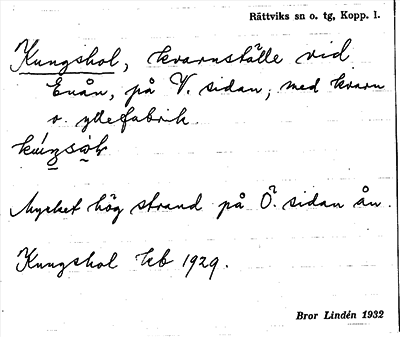 Rättviks sn o. tg, Kopp. l.
Kungshol, kvarnställe vid
Enån, på V. sidan, med kvarn
o. yllefabrik.
Mycket hög strand på Ö. sidan ån.
Kungshol kb 1929.
Bror Lindén 1932